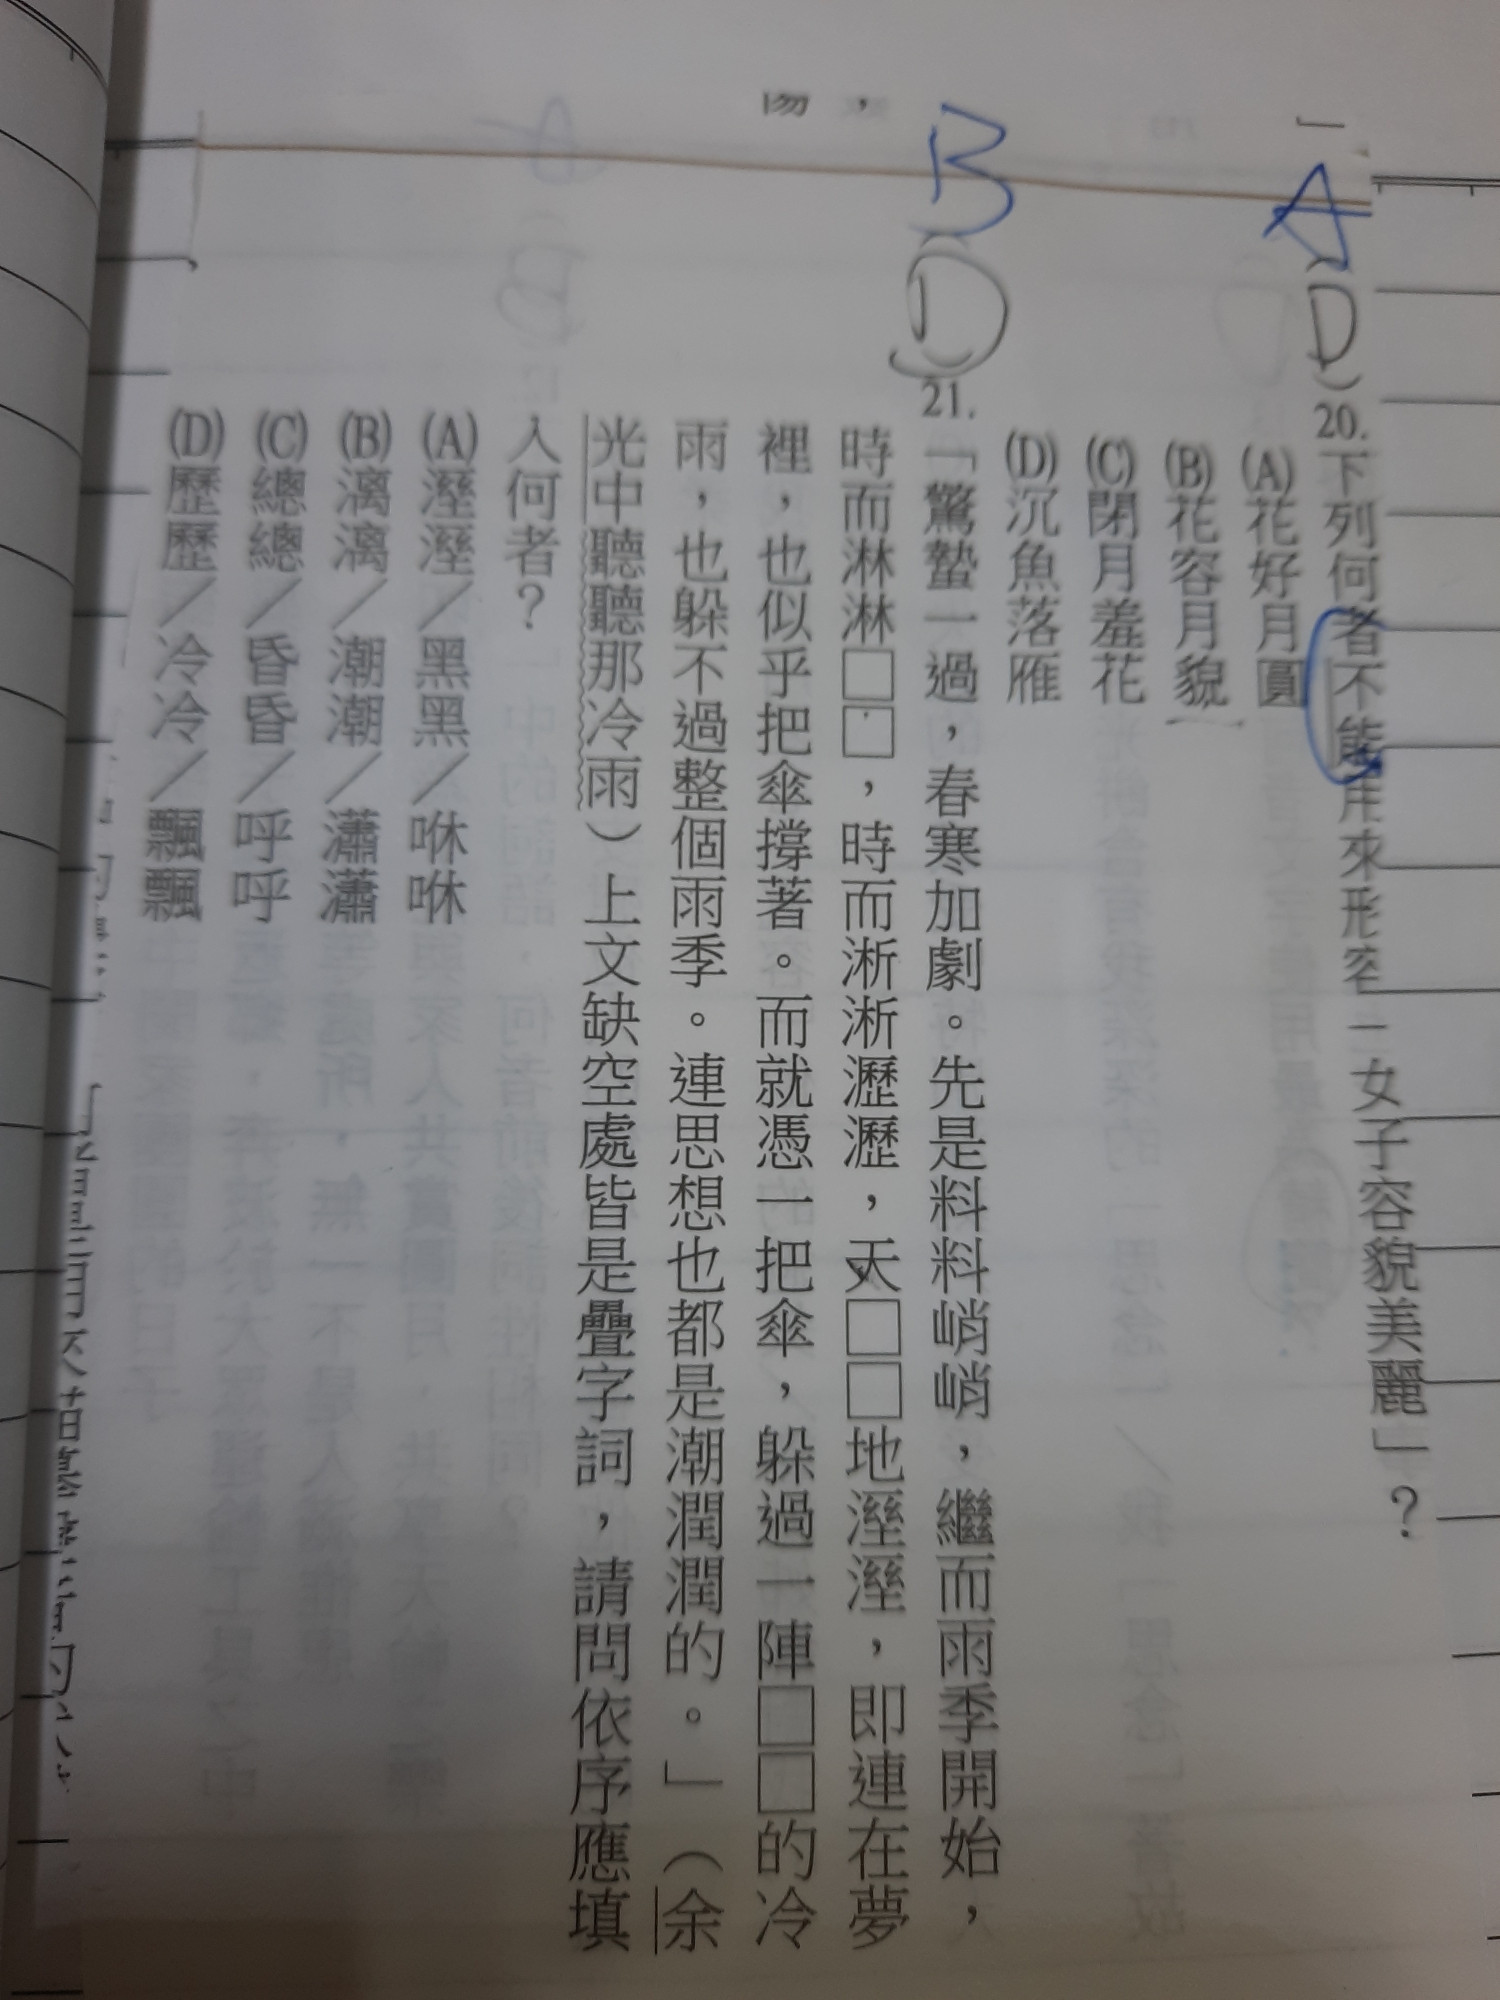 A
(D)20.下列何者不能用來形容「女子容貌美麗」?
(A)花好月圓
(B)花容月貌
(C)閉月羞花
(D)沉魚落雁
B
(D)21.「驚蟄一過,春寒加劇。先是料料峭峭,繼而雨季開始,
時而淋淋□□,時而淅淅瀝瀝,天□□地溼溼,即連在夢
裡,也似乎把傘撐著。而就憑一把傘,躲過一陣□□的冷
雨,也躲不過整個雨季。連思想也都是潮潤潤的。」(余
光中聽聽那冷雨)上文缺空處皆是疊字詞,請問依序應填
入何者?
(A)溼溼/黑黑/咻咻
(B)漓漓/潮潮/瀟瀟
(C)總總/昏昏/呼呼
(D)歷歷/冷冷/飄飄